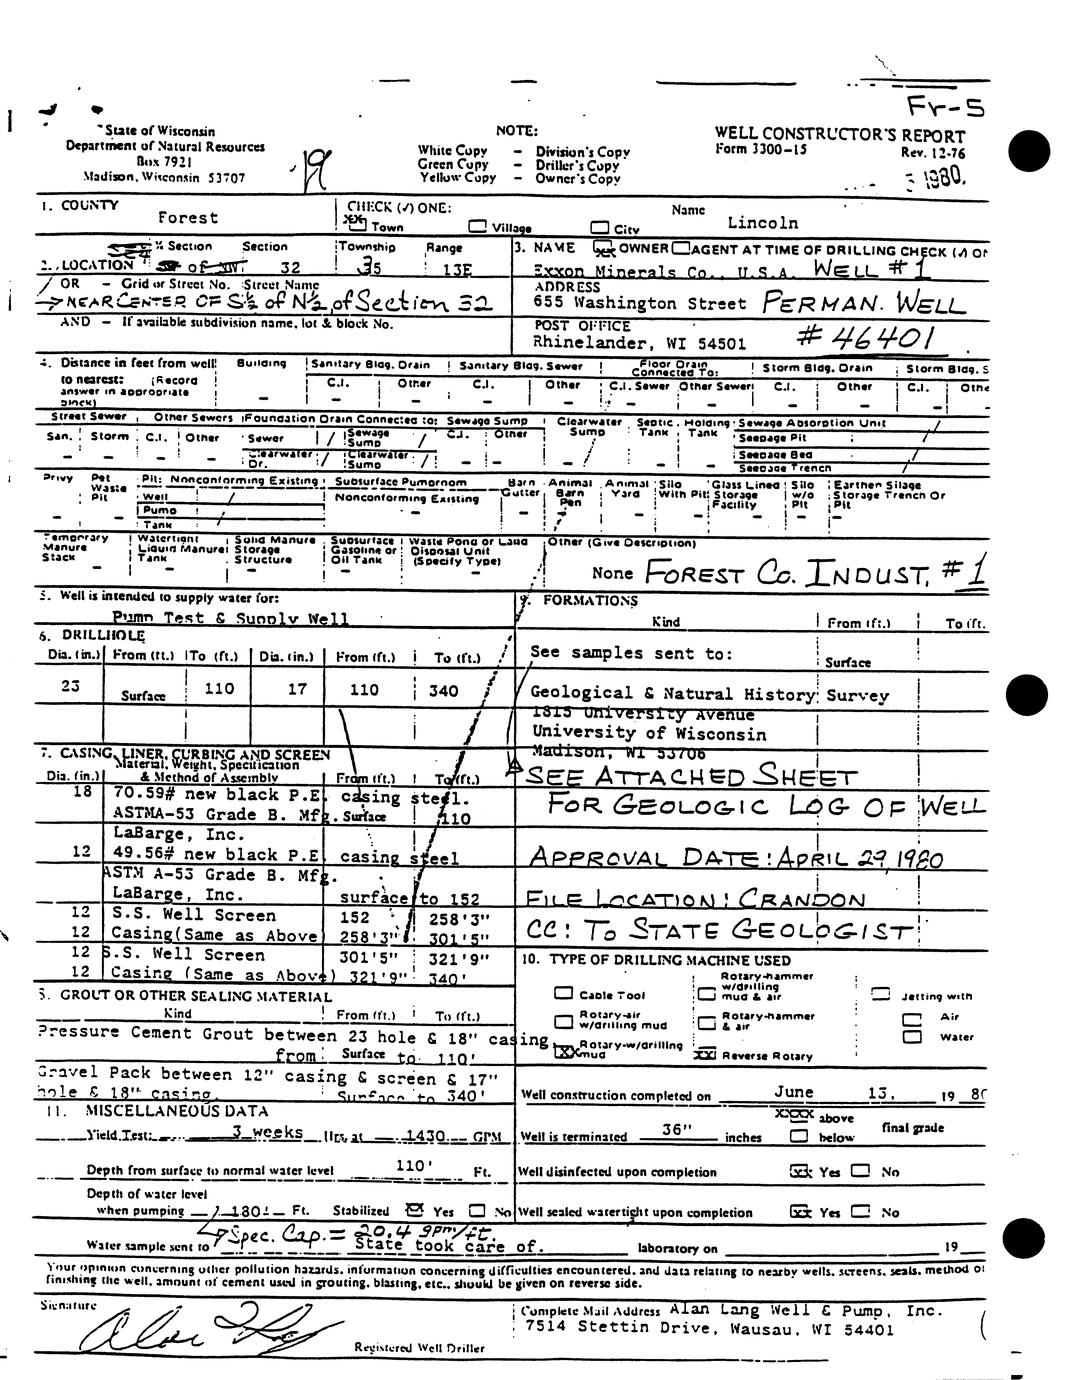 Fr-5
State of Wisconsin
Department of Natural Resources
Box 7921
Madison, Wisconsin 53707
NOTE:
White Copy – Division's Copy
Green Copy – Driller's Copy
Yellow Copy – Owner's Copy
WELL CONSTRUCTOR'S REPORT
Form 3300-15 Rev. 12-76
1980
1. COUNTY Forest
CHECK (✓) ONE: Name
XX Town Village City Lincoln
¼ Section Section Township Range
2. LOCATION of NW 32 35 13E
OR – Grid or Street No. Street Name
→ NEAR CENTER OF S½ of N½ of Section 32
AND – If available subdivision name, lot & block No.
3. NAME XX OWNER AGENT AT TIME OF DRILLING CHECK (✓) ON
Exxon Minerals Co., U.S.A. WELL #1
ADDRESS
655 Washington Street PERMAN. WELL
POST OFFICE
Rhinelander, WI 54501 # 46401
4. Distance in feet from well to nearest: (Record answer in appropriate block)
Building Sanitary Bldg. Drain Sanitary Bldg. Sewer Floor Drain Connected To: Storm Bldg. Drain Storm Bldg. S
C.I. Other C.I. Other C.I. Sewer Other Sewer C.I. Other C.I. Othe
– – – – – – – – – – –
Street Sewer Other Sewers Foundation Drain Connected to: Sewage Sump Clearwater Sump Septic Tank Holding Tank Sewage Absorption Unit
San. Storm C.I. Other Sewer Sewage Sump C.I. Other Seepage Pit
Clearwater Dr. Clearwater Sump Seepage Bed
Seepage Trench
Privy Pet Waste Pit Pit: Nonconforming Existing Subsurface Pumproom Barn Gutter Animal Barn Pen Animal Yard Silo With Pit Glass Lined Storage Facility Silo w/o Pit Earthen Silage Storage Trench Or Pit
Well Nonconforming Existing
Pump
Tank
Temporary Manure Stack Watertight Liquid Manure Tank Solid Manure Storage Structure Subsurface Gasoline or Oil Tank Waste Pond or Land Disposal Unit (Specify Type) Other (Give Description)
None FOREST CO. INDUST. #1
5. Well is intended to supply water for:
Pump Test & Supply Well
6. DRILLHOLE
Dia. (in.) From (ft.) To (ft.) Dia. (in.) From (ft.) To (ft.)
23 Surface 110 17 110 340
7. CASING, LINER, CURBING AND SCREEN
Material, Weight, Specification
Dia. (in.) & Method of Assembly From (ft.) To (ft.)
18 70.59# new black P.E. casing steel.
ASTMA-53 Grade B. Mfg. Surface 110
LaBarge, Inc.
12 49.56# new black P.E. casing steel
ASTM A-53 Grade B. Mfg.
LaBarge, Inc. surface to 152
12 S.S. Well Screen 152 258'3"
12 Casing(Same as Above) 258'3" 301'5"
12 S.S. Well Screen 301'5" 321'9"
12 Casing (Same as Above) 321'9" 340'
8. GROUT OR OTHER SEALING MATERIAL
Kind From (ft.) To (ft.)
Pressure Cement Grout between 23 hole & 18" casing
from Surface to 110'
Gravel Pack between 12" casing & screen & 17"
hole & 18" casing. Surface to 340'
9. FORMATIONS
Kind From (ft.) To (ft.
See samples sent to: Surface
Geological & Natural History Survey
1815 University Avenue
University of Wisconsin
Madison, WI 53706
SEE ATTACHED SHEET
FOR GEOLOGIC LOG OF WELL
APPROVAL DATE: APRIL 29, 1980
FILE LOCATION: CRANDON
CC: TO STATE GEOLOGIST
10. TYPE OF DRILLING MACHINE USED
Cable Tool Rotary-hammer w/drilling mud & air Jetting with
Rotary-air w/drilling mud Rotary-hammer & air Air
XX Rotary-w/drilling mud XX Reverse Rotary Water
11. MISCELLANEOUS DATA
Yield Test: 3 weeks Hrs. at 1430 GPM
Depth from surface to normal water level 110' Ft.
Depth of water level
when pumping 180' Ft. Stabilized Yes No
Spec. Cap. = 20.4 gpm/ft.
Water sample sent to State took care of. laboratory on 19
Well construction completed on June 13, 19 80
Well is terminated 36" inches XXXX above below final grade
Well disinfected upon completion XX Yes No
Well sealed watertight upon completion XX Yes No
Your opinion concerning other pollution hazards, information concerning difficulties encountered, and data relating to nearby wells, screens, seals, method of
finishing the well, amount of cement used in grouting, blasting, etc., should be given on reverse side.
Signature
Registered Well Driller
Complete Mail Address Alan Lang Well & Pump, Inc.
7514 Stettin Drive, Wausau, WI 54401